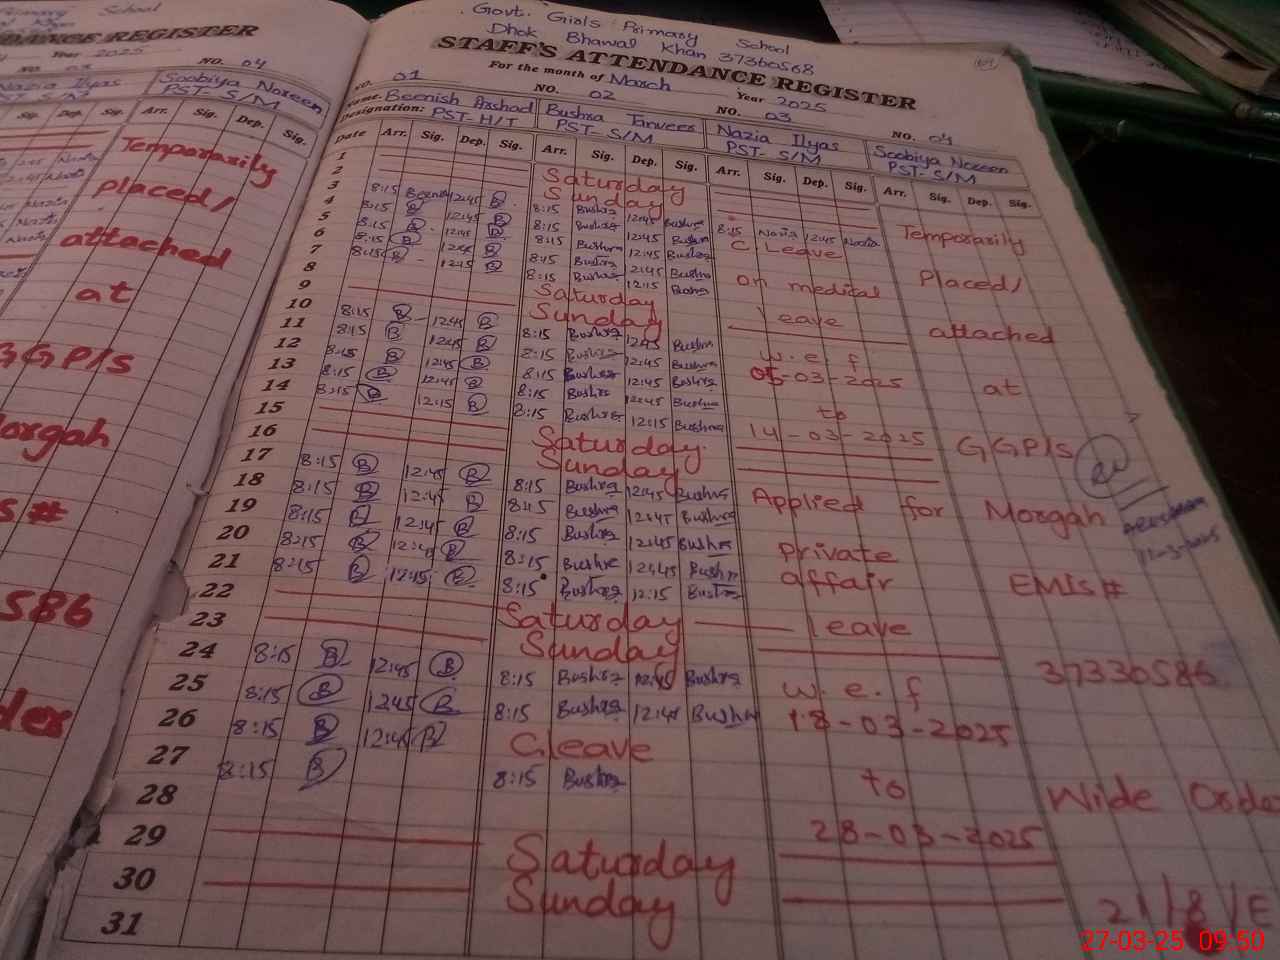 School
Khan
DANCE REGISTER
Year 2025
NO. 03
NO. 04
Nazia Ilyas
Soobiya Noreen
PST-S/M
PST-S/M
Sig. Dep. Sig. Arr. Sig. Dep. Sig.
Temporarily
placed/
attached
at
GGP/s
Morgah
S#
586
der
Govt. Girls Primary School
Dhok Bhawal Khan 37360568
STAFF'S ATTENDANCE REGISTER
For the month of March Year 2025
NO. 01 NO. 02 NO. 03 NO. 04
Name: Beenish Arshad Bushra Tanveer Nazia Ilyas Soobiya Noreen
Designation: PST-H/T PST-S/M PST-S/M PST-S/M
Date Arr. Sig. Dep. Sig. Arr. Sig. Dep. Sig. Arr. Sig. Dep. Sig. Arr. Sig. Dep. Sig.
1 Saturday
2 Sunday
3 8:15 Beenish 12:45 B 8:15 Bushra 12:45 Bushra 8:15 Nazia 12:45 Nazia Temporarily
4 8:15 B 12:45 B 8:15 Bushra 12:45 Bushra C Leave
5 8:15 B 12:45 B 8:15 Bushra 12:45 Bushra on medical Placed/
6 8:15 B 12:45 B 8:15 Bushra 12:45 Bushra
7 8:15 B 12:15 B 8:15 Bushra 12:15 Bushra leave
8 Saturday attached
9 Sunday
10 8:15 B 12:45 B 8:15 Bushra 12:45 Bushra w.e.f
11 8:15 B 12:45 B 8:15 Bushra 12:45 Bushra 05-03-2025 at
12 8:15 B 12:45 B 8:15 Bushra 12:45 Bushra
13 8:15 B 12:45 B 8:15 Bushra 12:45 Bushra to
14 8:15 B 12:15 B 8:15 Bushra 12:15 Bushra 14-03-2025 GGP/s
15 Saturday
16 Sunday
17 8:15 B 12:45 B 8:15 Bushra 12:45 Bushra Applied for Morgah
18 8:15 B 12:45 B 8:15 Bushra 12:45 Bushra
19 8:15 B 12:45 B 8:15 Bushra 12:45 Bushra private
20 8:15 B 12:45 B 8:15 Bushra 12:45 Bushra affair EMIS#
21 8:15 B 12:15 B 8:15 Bushra 12:15 Bushra
22 Saturday leave
23 Sunday
24 8:15 B 12:45 B 8:15 Bushra 12:45 Bushra w.e.f 37330586
25 8:15 B 12:45 B 8:15 Bushra 12:45 Bushra 18-03-2025
26 8:15 B 12:45 B C leave
27 8:15 B 8:15 Bushra to
28 28-03-2025 Wide Order
29 Saturday
30 Sunday 21/8/E
31
27-03-25 09:50